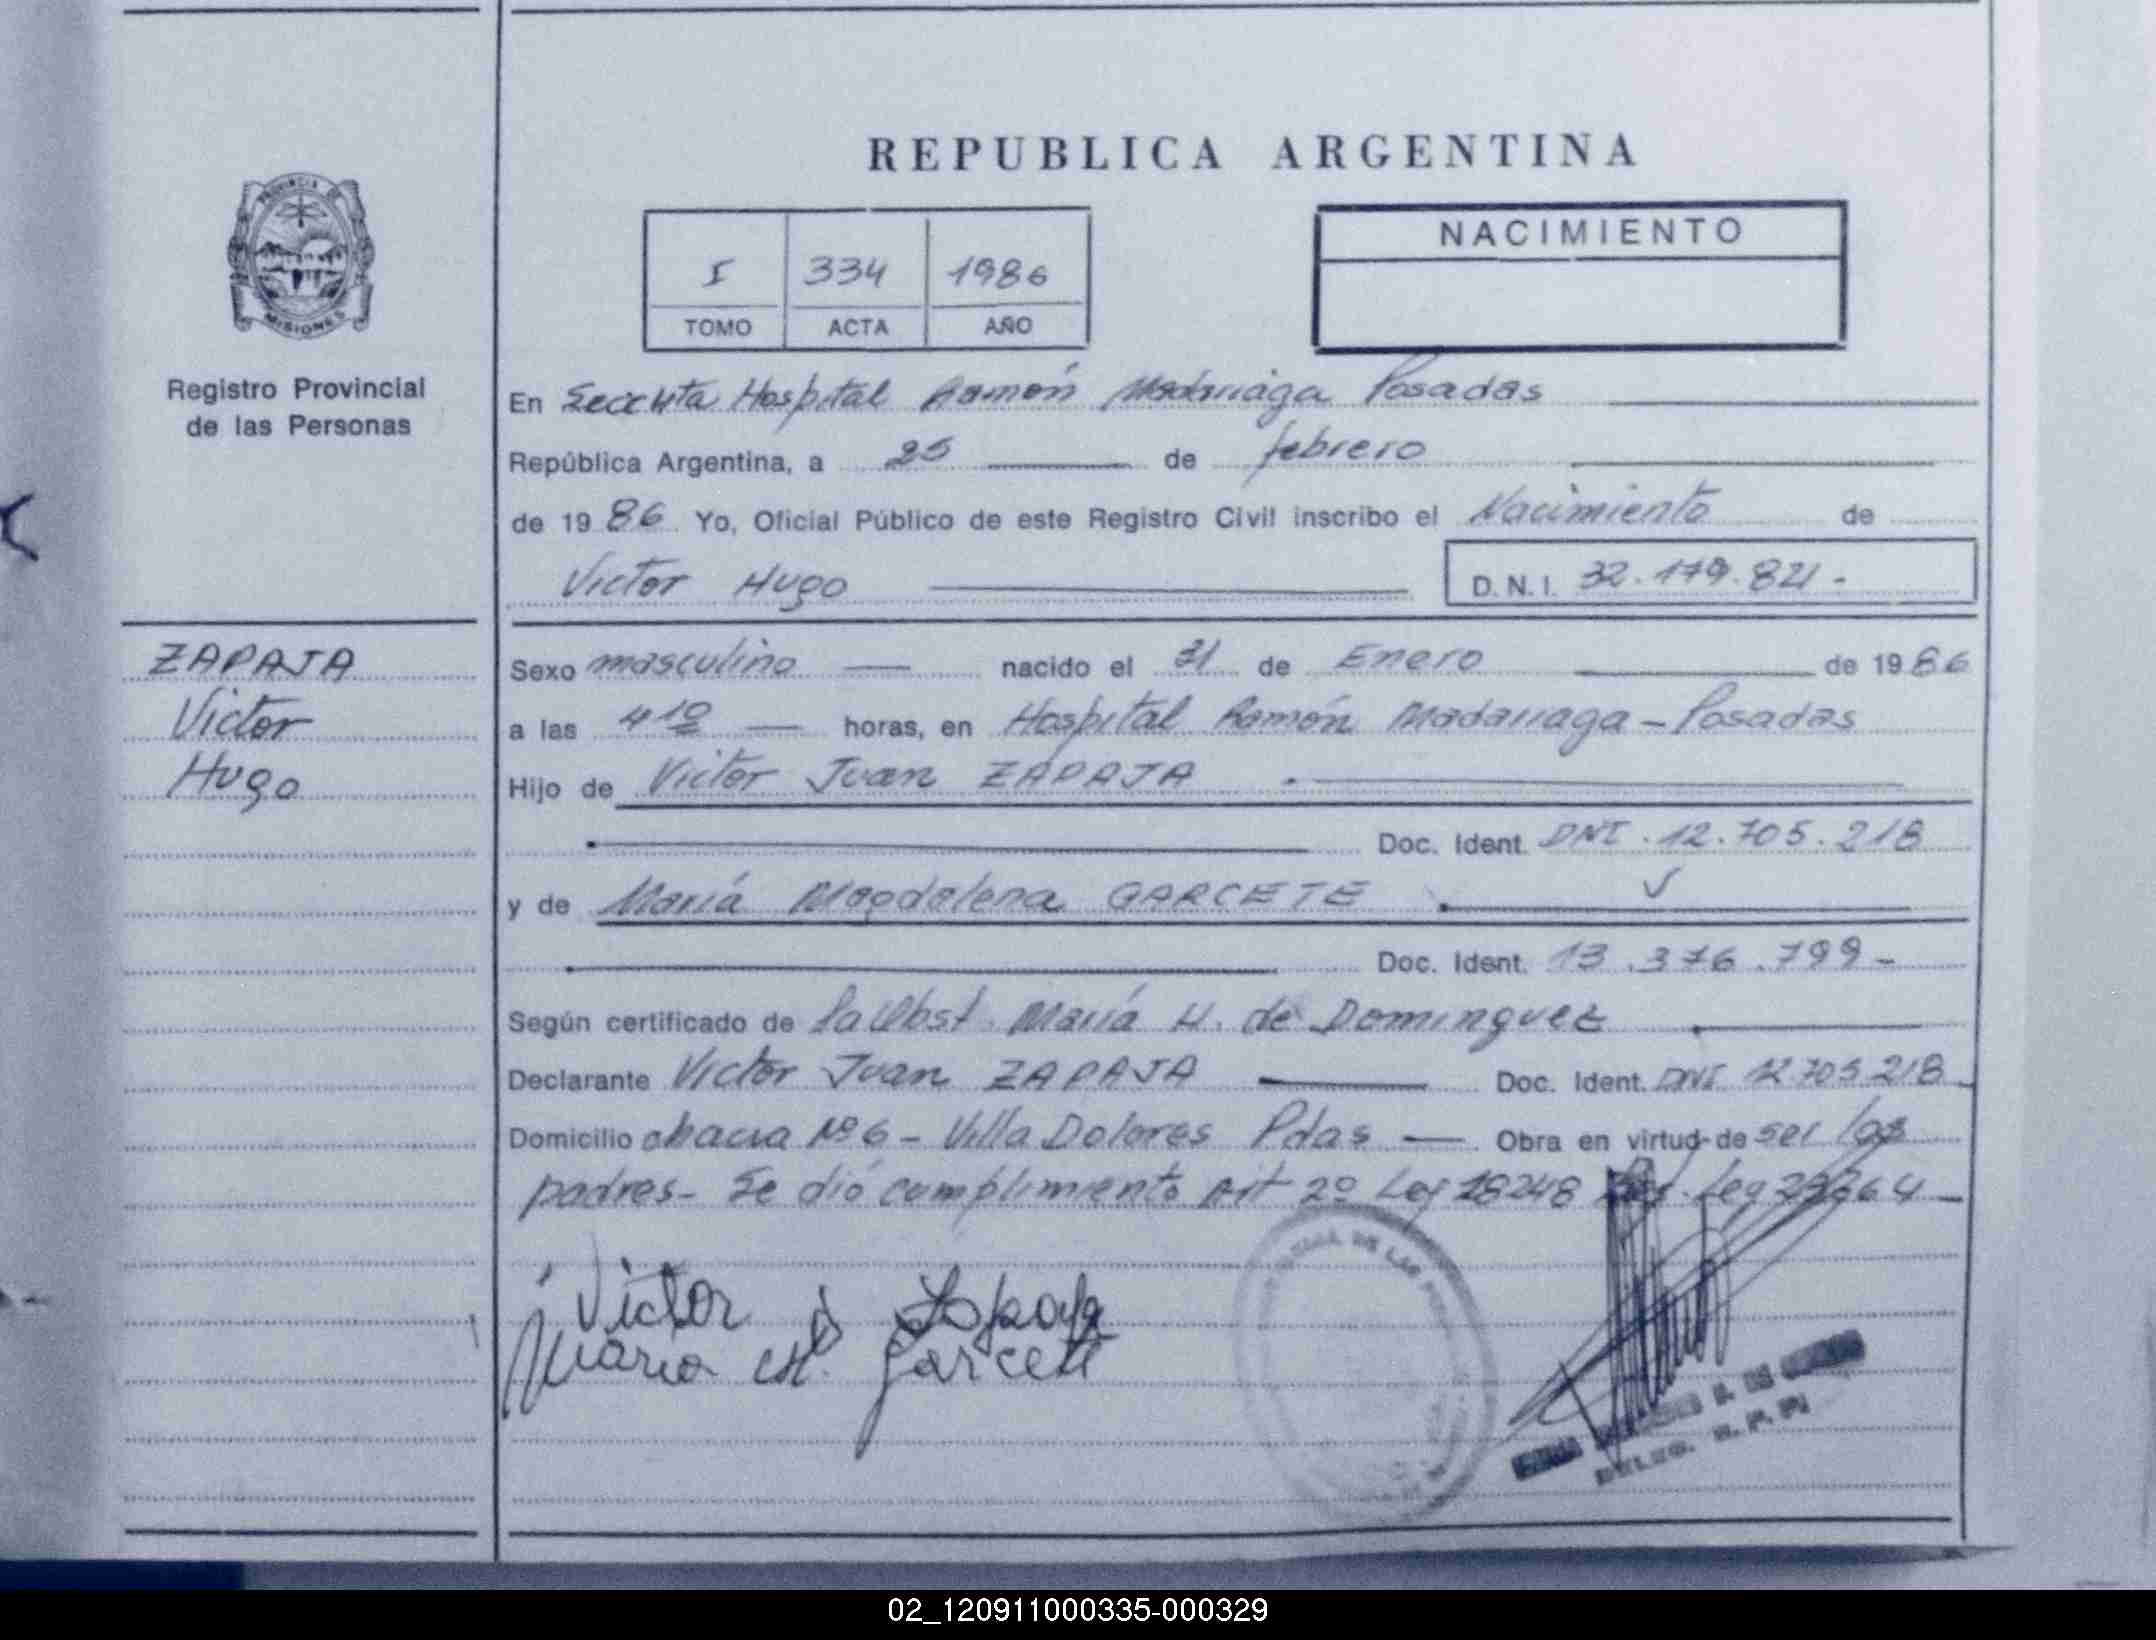 REPUBLICA ARGENTINA
PROVINCIA DE
MISIONES
Registro Provincial
de las Personas
I 334 1986
TOMO ACTA AÑO
NACIMIENTO
En Hospital Ramón Madariaga Posadas
República Argentina, a 25 de febrero
de 1986 Yo, Oficial Público de este Registro Civil inscribo el Nacimiento de
Victor Hugo D.N.I. 32.179.821.-
ZAPAJA
Victor
Hugo
Sexo masculino nacido el 31 de Enero de 1986
a las 4 10 horas, en Hospital Ramón Madariaga - Posadas
Hijo de Victor Juan ZAPAJA
Doc. Ident. DNI. 12.705.218
y de María Magdalena GARCETE
Doc. Ident. 13.376.799-
Según certificado de la Obst. María H. de Dominguez
Declarante Victor Juan ZAPAJA Doc. Ident. DNI 12.705.218
Domicilio chacra Nº 6 - Villa Dolores Pdas - Obra en virtud de ser los
padres - Se dió cumplimiento Art 2º Ley 18248
Victor J Zapaja
Maria M. Garcete
DE LAS
DELEG. R. P. P.
02_120911000335-000329